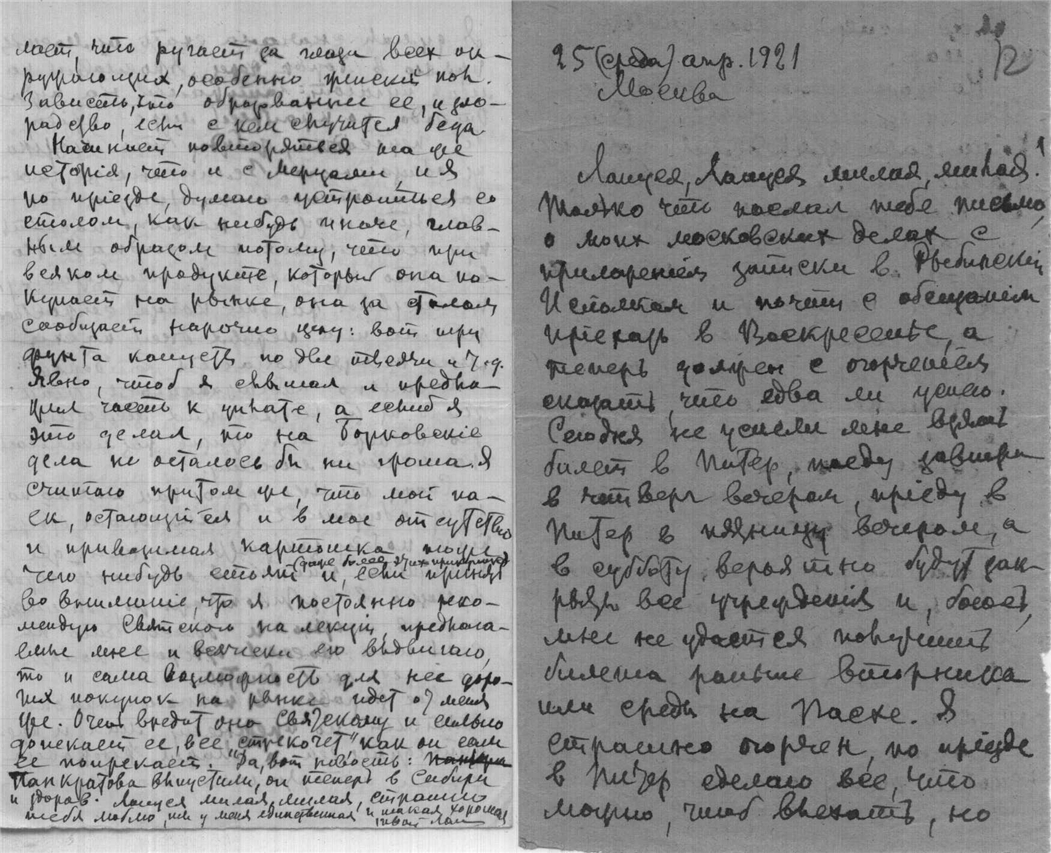 лает, что ругает за глаза всех ок-
ружающих, особенно женский пол.
Зависть, что образованнее ее, и зло-
радство, если с кем случится беда
Начинает повторяться та же
исторія, что и с Мерцами, и я
по пріезде, думаю устроиться со
столом, как нибудь иначе, глав-
ным образом потому, что при
всяком продукте, который она по-
купает на рынке, она за столом
сообщает нарочно цену: вот три
фунта капусты по две тысячи и т.д.
Явно, чтоб я слышал и предло-
жил часть к уплате, а еслиб я
это делал, то на Борковскіе
дела не осталось бы ни гроша. Я
считаю притом же, что мой па-
ек, остающійся и в мое отсутствіе
и привозимая картошка тоже
чего нибудь стоят и, если принять
во вниманіе, что я постоянно реко-
мендую Святского на лекціи, предлага-
емые мне и всячески его выдвигаю,
то и сама возможность для нее доро-
гих покупок на рынке идет от меня
же. Очень вредит она Святскому и сильно
допекает ее, все „стрекочет“ как он сам
ее попрекает. Да, вот новость:
Панкратова выпустили, он теперь в Сибири
и здоров. Лапуся милая, милая, страшно
тебя люблю, ты у меня единственная и такая хорошая
твой Лап
12
25 (среда) апр. 1921
Москва
Лапуся, Лапуся милая, милая!
Только что послал тебе письмо,
о моих московских делах с
приложеніем записки в Рыбинскій
Исполком и почти с обещаніем
пріехать в Воскресенье, а
теперь должен с огорченіем
сказать, что едва ли успею.
Сегодня не успели мне взять
билет в Питер, поеду завтра
в четверг вечером, пріеду в
Питер в пятницу вечером, а
в субботу, вероятно будут зак-
рыты все учрежденія и, боюсь,
мне не удастся получить
билета раньше вторника
или среды на Пасхе. Я
страшно огорчен, по пріезде
в Питер сделаю все, что
можно, чтоб выехать, но